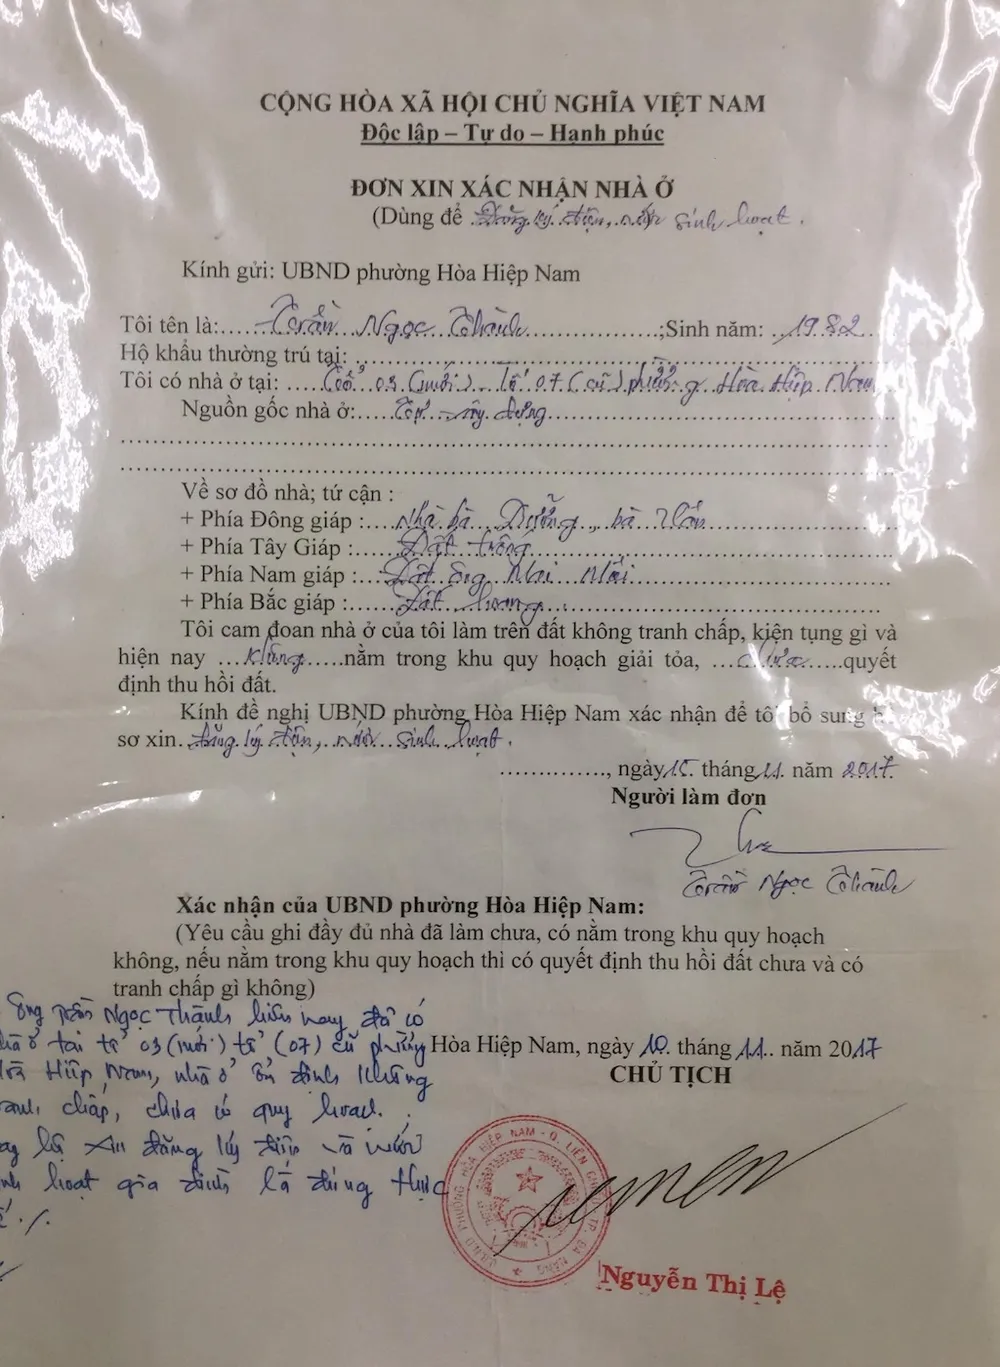 CỘNG HÒA XÃ HỘI CHỦ NGHĨA VIỆT NAM
Độc lập – Tự do – Hạnh phúc
ĐƠN XIN XÁC NHẬN NHÀ Ở
(Dùng để Đăng ký điện, nước sinh hoạt.
Kính gửi: UBND phường Hòa Hiệp Nam
Tôi tên là: Trần Ngọc Thành ;Sinh năm: 1982
Hộ khẩu thường trú tại:
Tôi có nhà ở tại: Tổ 03 (mới) Tổ 07 (cũ) phường Hòa Hiệp Nam
Nguồn gốc nhà ở: Tự xây dựng
Về sơ đồ nhà; tứ cận :
+ Phía Đông giáp : Nhà bà Dưỡng, bà
+ Phía Tây Giáp : Đất trống
+ Phía Nam giáp : Đất ông Mai
+ Phía Bắc giáp : Đất hoang
Tôi cam đoan nhà ở của tôi làm trên đất không tranh chấp, kiện tụng gì và
hiện nay không nằm trong khu quy hoạch giải tỏa, chưa quyết
định thu hồi đất.
Kính đề nghị UBND phường Hòa Hiệp Nam xác nhận để tôi bổ sung
sơ xin đăng ký điện, nước sinh hoạt.
, ngày tháng 11 năm 2017
Người làm đơn
Trần Ngọc Thành
Xác nhận của UBND phường Hòa Hiệp Nam:
(Yêu cầu ghi đầy đủ nhà đã làm chưa, có nằm trong khu quy hoạch
không, nếu nằm trong khu quy hoạch thì có quyết định thu hồi đất chưa và có
tranh chấp gì không)
Ông Trần Ngọc Thành hiện nay đã có
nhà ở tại tổ 03 (mới) tổ (07) cũ phường
Hòa Hiệp Nam, nhà ở ổn định không
tranh chấp, chưa có quy hoạch.
nay hộ xin đăng ký điện và nước
sinh hoạt gia đình là đúng thực
tế ./.
Hòa Hiệp Nam, ngày 10 tháng 11 năm 2017
CHỦ TỊCH
U.B.N.D PHƯỜNG HÒA HIỆP NAM - Q. LIÊN CHIỂU - TP. ĐÀ NẴNG
Nguyễn Thị Lệ